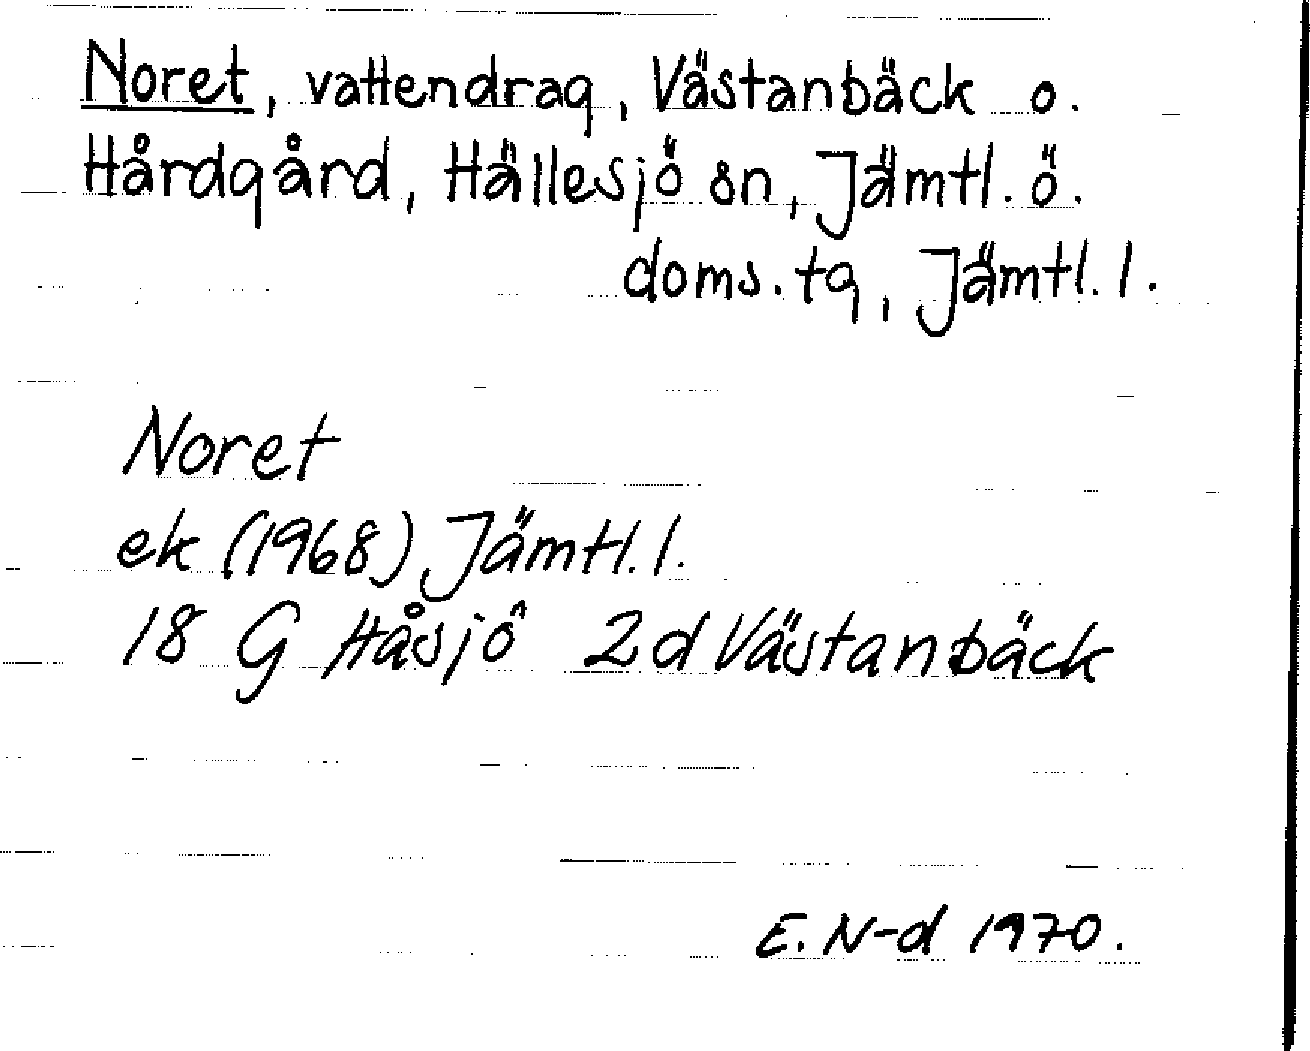 Noret, vattendrag, Västanbäck o.
Hårdgård, Hällesjö sn, Jämtl. ö.
doms. tg, Jämtl. l.
Noret
ek (1968) Jämtl. l.
18 G Håsjö 2d Västanbäck
E. N-d 1970.